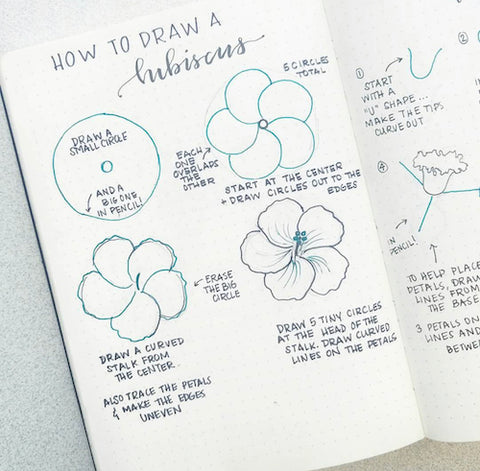 HOW TO DRAW A
hibiscus
DRAW A
SMALL CIRCLE
AND A
BIG ONE
IN PENCIL!
5 CIRCLES
TOTAL
EACH
ONE
OVERLAPS
THE
OTHER
START AT THE CENTER
+ DRAW CIRCLES OUT TO THE
EDGES
DRAW A CURVED
STALK FROM
THE CENTER.
ALSO TRACE THE PETALS
& MAKE THE EDGES
UNEVEN
ERASE
THE BIG
CIRCLE
DRAW 5 TINY CIRCLES
AT THE HEAD OF THE
STALK. DRAW CURVED
LINES ON THE PETALS
1
START
WITH A
"U" SHAPE...
MAKE THE TIPS
CURVE OUT
2
4
IN
PENCIL!
TO HELP PLACE
PETALS, DRAW
LINES FROM
THE BASE
3 PETALS ON
LINES AND